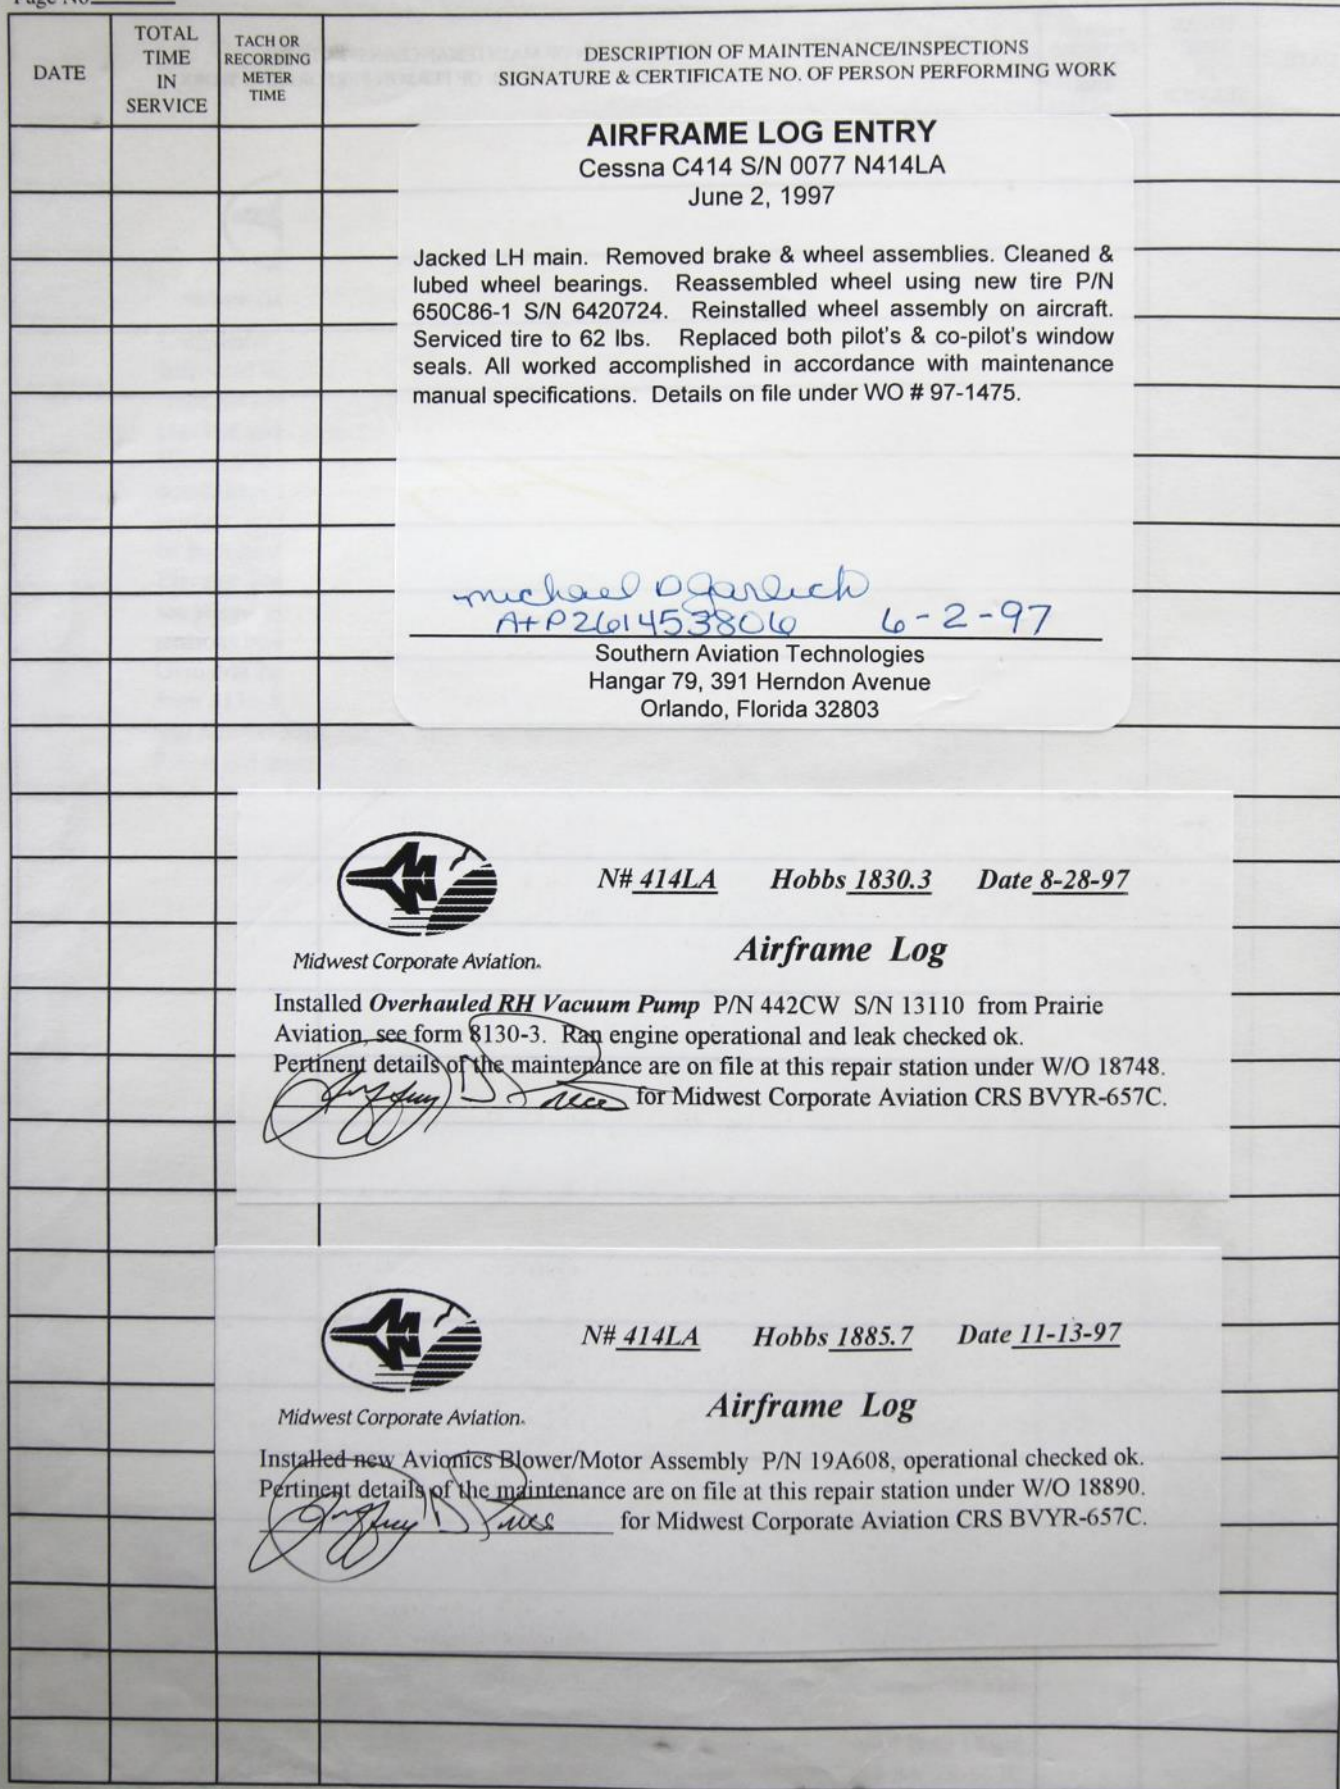 Page No.
DATE
TOTAL
TIME
IN
SERVICE
TACH OR
RECORDING
METER
TIME
DESCRIPTION OF MAINTENANCE/INSPECTIONS
SIGNATURE & CERTIFICATE NO. OF PERSON PERFORMING WORK
AIRFRAME LOG ENTRY
Cessna C414 S/N 0077 N414LA
June 2, 1997
Jacked LH main. Removed brake & wheel assemblies. Cleaned &
lubed wheel bearings. Reassembled wheel using new tire P/N
650C86-1 S/N 6420724. Reinstalled wheel assembly on aircraft.
Serviced tire to 62 lbs. Replaced both pilot's & co-pilot's window
seals. All worked accomplished in accordance with maintenance
manual specifications. Details on file under WO # 97-1475.
michael D Garlich
A+P261453806 6-2-97
Southern Aviation Technologies
Hangar 79, 391 Herndon Avenue
Orlando, Florida 32803
N# 414LA Hobbs 1830.3 Date 8-28-97
Midwest Corporate Aviation.
Airframe Log
Installed Overhauled RH Vacuum Pump P/N 442CW S/N 13110 from Prairie
Aviation, see form 8130-3. Ran engine operational and leak checked ok.
Pertinent details of the maintenance are on file at this repair station under W/O 18748.
for Midwest Corporate Aviation CRS BVYR-657C.
N# 414LA Hobbs 1885.7 Date 11-13-97
Midwest Corporate Aviation.
Airframe Log
Installed new Avionics Blower/Motor Assembly P/N 19A608, operational checked ok.
Pertinent details of the maintenance are on file at this repair station under W/O 18890.
for Midwest Corporate Aviation CRS BVYR-657C.